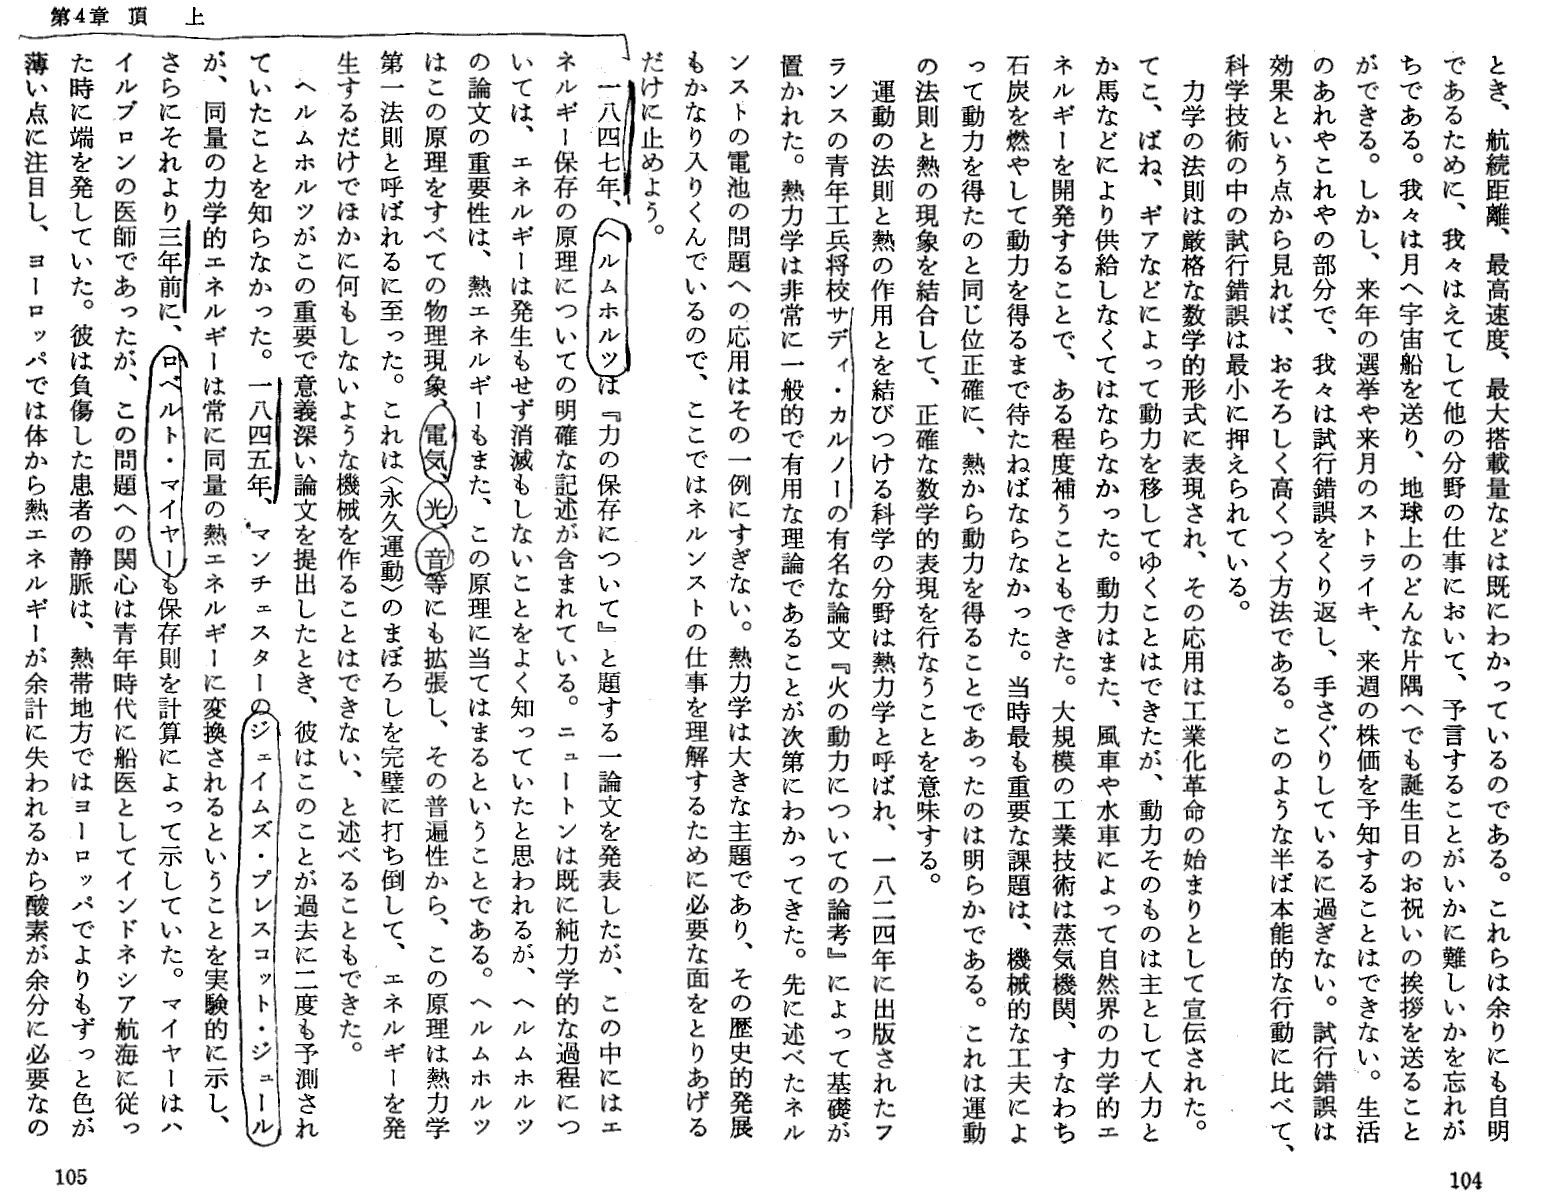 第4章 頂 上
とき、航続距離、最高速度、最大搭載量などは既にわかっているのである。これらは余りにも自明
であるために、我々はえてして他の分野の仕事において、予言することがいかに難しいかを忘れが
ちである。我々は月へ宇宙船を送り、地球上のどんな片隅へでも誕生日のお祝いの挨拶を送ること
ができる。しかし、来年の選挙や来月のストライキ、来週の株価を予知することはできない。生活
のあれやこれやの部分で、我々は試行錯誤をくり返し、手さぐりしているに過ぎない。試行錯誤は
効果という点から見れば、おそろしく高くつく方法である。このような半ば本能的な行動に比べて、
科学技術の中の試行錯誤は最小に押えられている。
力学の法則は厳格な数学的形式に表現され、その応用は工業化革命の始まりとして宣伝された。
てこ、ばね、ギアなどによって動力を移してゆくことはできたが、動力そのものは主として人力と
か馬などにより供給しなくてはならなかった。動力はまた、風車や水車によって自然界の力学的エ
ネルギーを開発することで、ある程度補うこともできた。大規模の工業技術は蒸気機関、すなわち
石炭を燃やして動力を得るまで待たねばならなかった。当時最も重要な課題は、機械的な工夫によ
って動力を得たのと同じ位正確に、熱から動力を得ることであったのは明らかである。これは運動
の法則と熱の現象を結合して、正確な数学的表現を行なうことを意味する。
運動の法則と熱の作用とを結びつける科学の分野は熱力学と呼ばれ、一八二四年に出版されたフ
ランスの青年工兵将校サディ・カルノーの有名な論文『火の動力についての論考』によって基礎が
置かれた。熱力学は非常に一般的で有用な理論であることが次第にわかってきた。先に述べたネル
ンストの電池の問題への応用はその一例にすぎない。熱力学は大きな主題であり、その歴史的発展
もかなり入りくんでいるので、ここではネルンストの仕事を理解するために必要な面をとりあげる
だけに止めよう。
一八四七年、ヘルムホルツは『力の保存について』と題する一論文を発表したが、この中にはエ
ネルギー保存の原理についての明確な記述が含まれている。ニュートンは既に純力学的な過程につ
いては、エネルギーは発生もせず消滅もしないことをよく知っていたと思われるが、ヘルムホルツ
の論文の重要性は、熱エネルギーもまた、この原理に当てはまるということである。ヘルムホルツ
はこの原理をすべての物理現象、電気、光、音等にも拡張し、その普遍性から、この原理は熱力学
第一法則と呼ばれるに至った。これは〈永久運動〉のまぼろしを完璧に打ち倒して、エネルギーを発
生するだけでほかに何もしないような機械を作ることはできない、と述べることもできた。
ヘルムホルツがこの重要で意義深い論文を提出したとき、彼はこのことが過去に二度も予測され
ていたことを知らなかった。一八四五年、マンチェスターのジェイムズ・プレスコット・ジュール
が、同量の力学的エネルギーは常に同量の熱エネルギーに変換されるということを実験的に示し、
さらにそれより三年前に、ロベルト・マイヤーも保存則を計算によって示していた。マイヤーはハ
イルブロンの医師であったが、この問題への関心は青年時代に船医としてインドネシア航海に従っ
た時に端を発していた。彼は負傷した患者の静脈は、熱帯地方ではヨーロッパでよりもずっと色が
薄い点に注目し、ヨーロッパでは体から熱エネルギーが余計に失われるから酸素が余分に必要なの
105
104